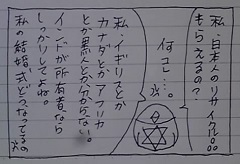 私、日本人のリサイクル品
もらえるの?
何コレ…
私、イギリスとか
カナダとか アフリカ
とか黒人とか分からない。
インドが所有者なら
しっかりしてよね。
私の結婚式どうなってるの